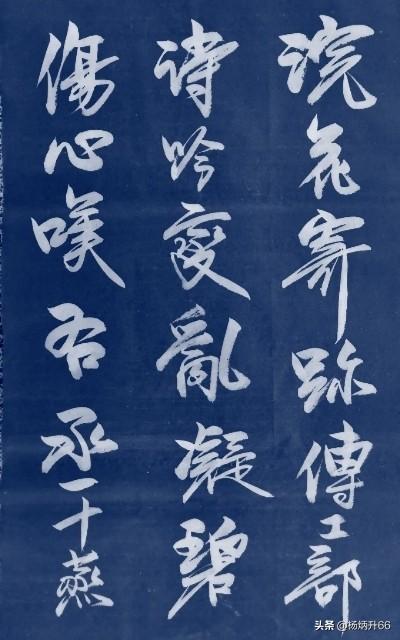 浣花寄跡傳工部
詩吟變亂凝碧
傷心嘆右丞一十燕
头条 @杨炳升66